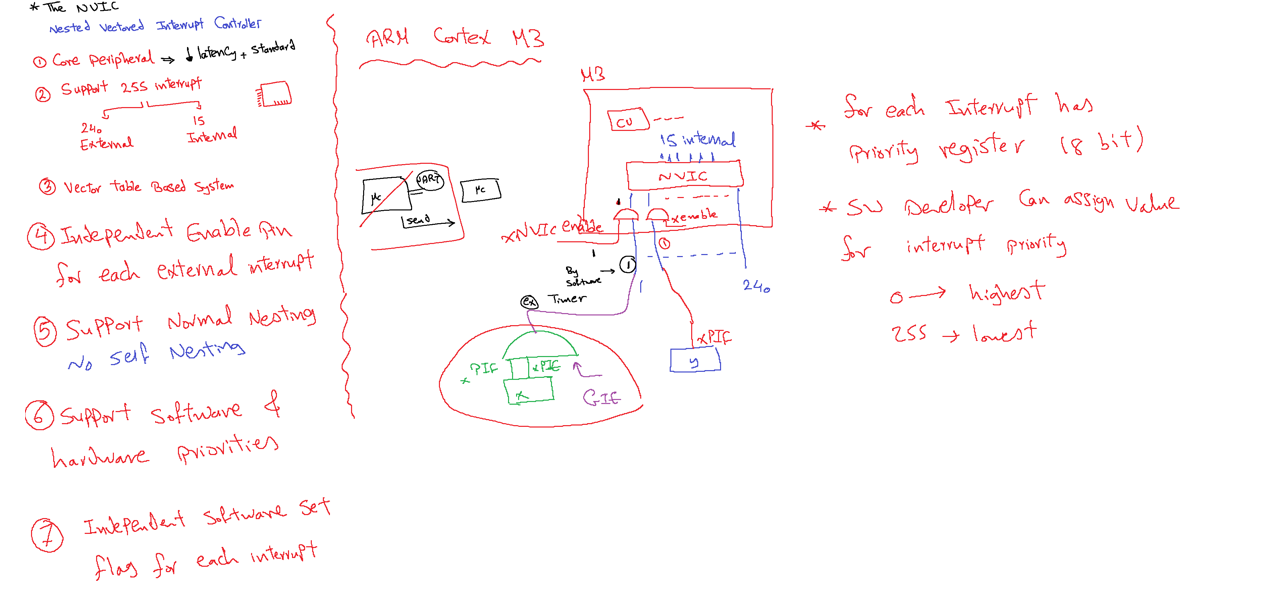 * The NVIC
Nested Vectored Interrupt Controller
① Core Peripheral → ↓ latency + standard
② Support 255 interrupt
240 External
15 Internal
③ Vector Table Based System
④ Independent Enable Pin
for each external interrupt
⑤ Support Normal Nesting
No Self Nesting
⑥ Support Software &
hardware priorities
⑦ Independent Software Set
flag for each interrupt
ARM Cortex M3
M3
CU
15 internal
NVIC
xNVIC enable
x enable
1
①
By Software → ①
1
240
μc
UART
send
μc
ex
Timer
xPIF
xPIE
x
GIE
xPIF
y
* for each Interrupt has
Priority register (8 bit)
* SW Developer Can assign Value
for interrupt priority
0 → highest
255 → lowest